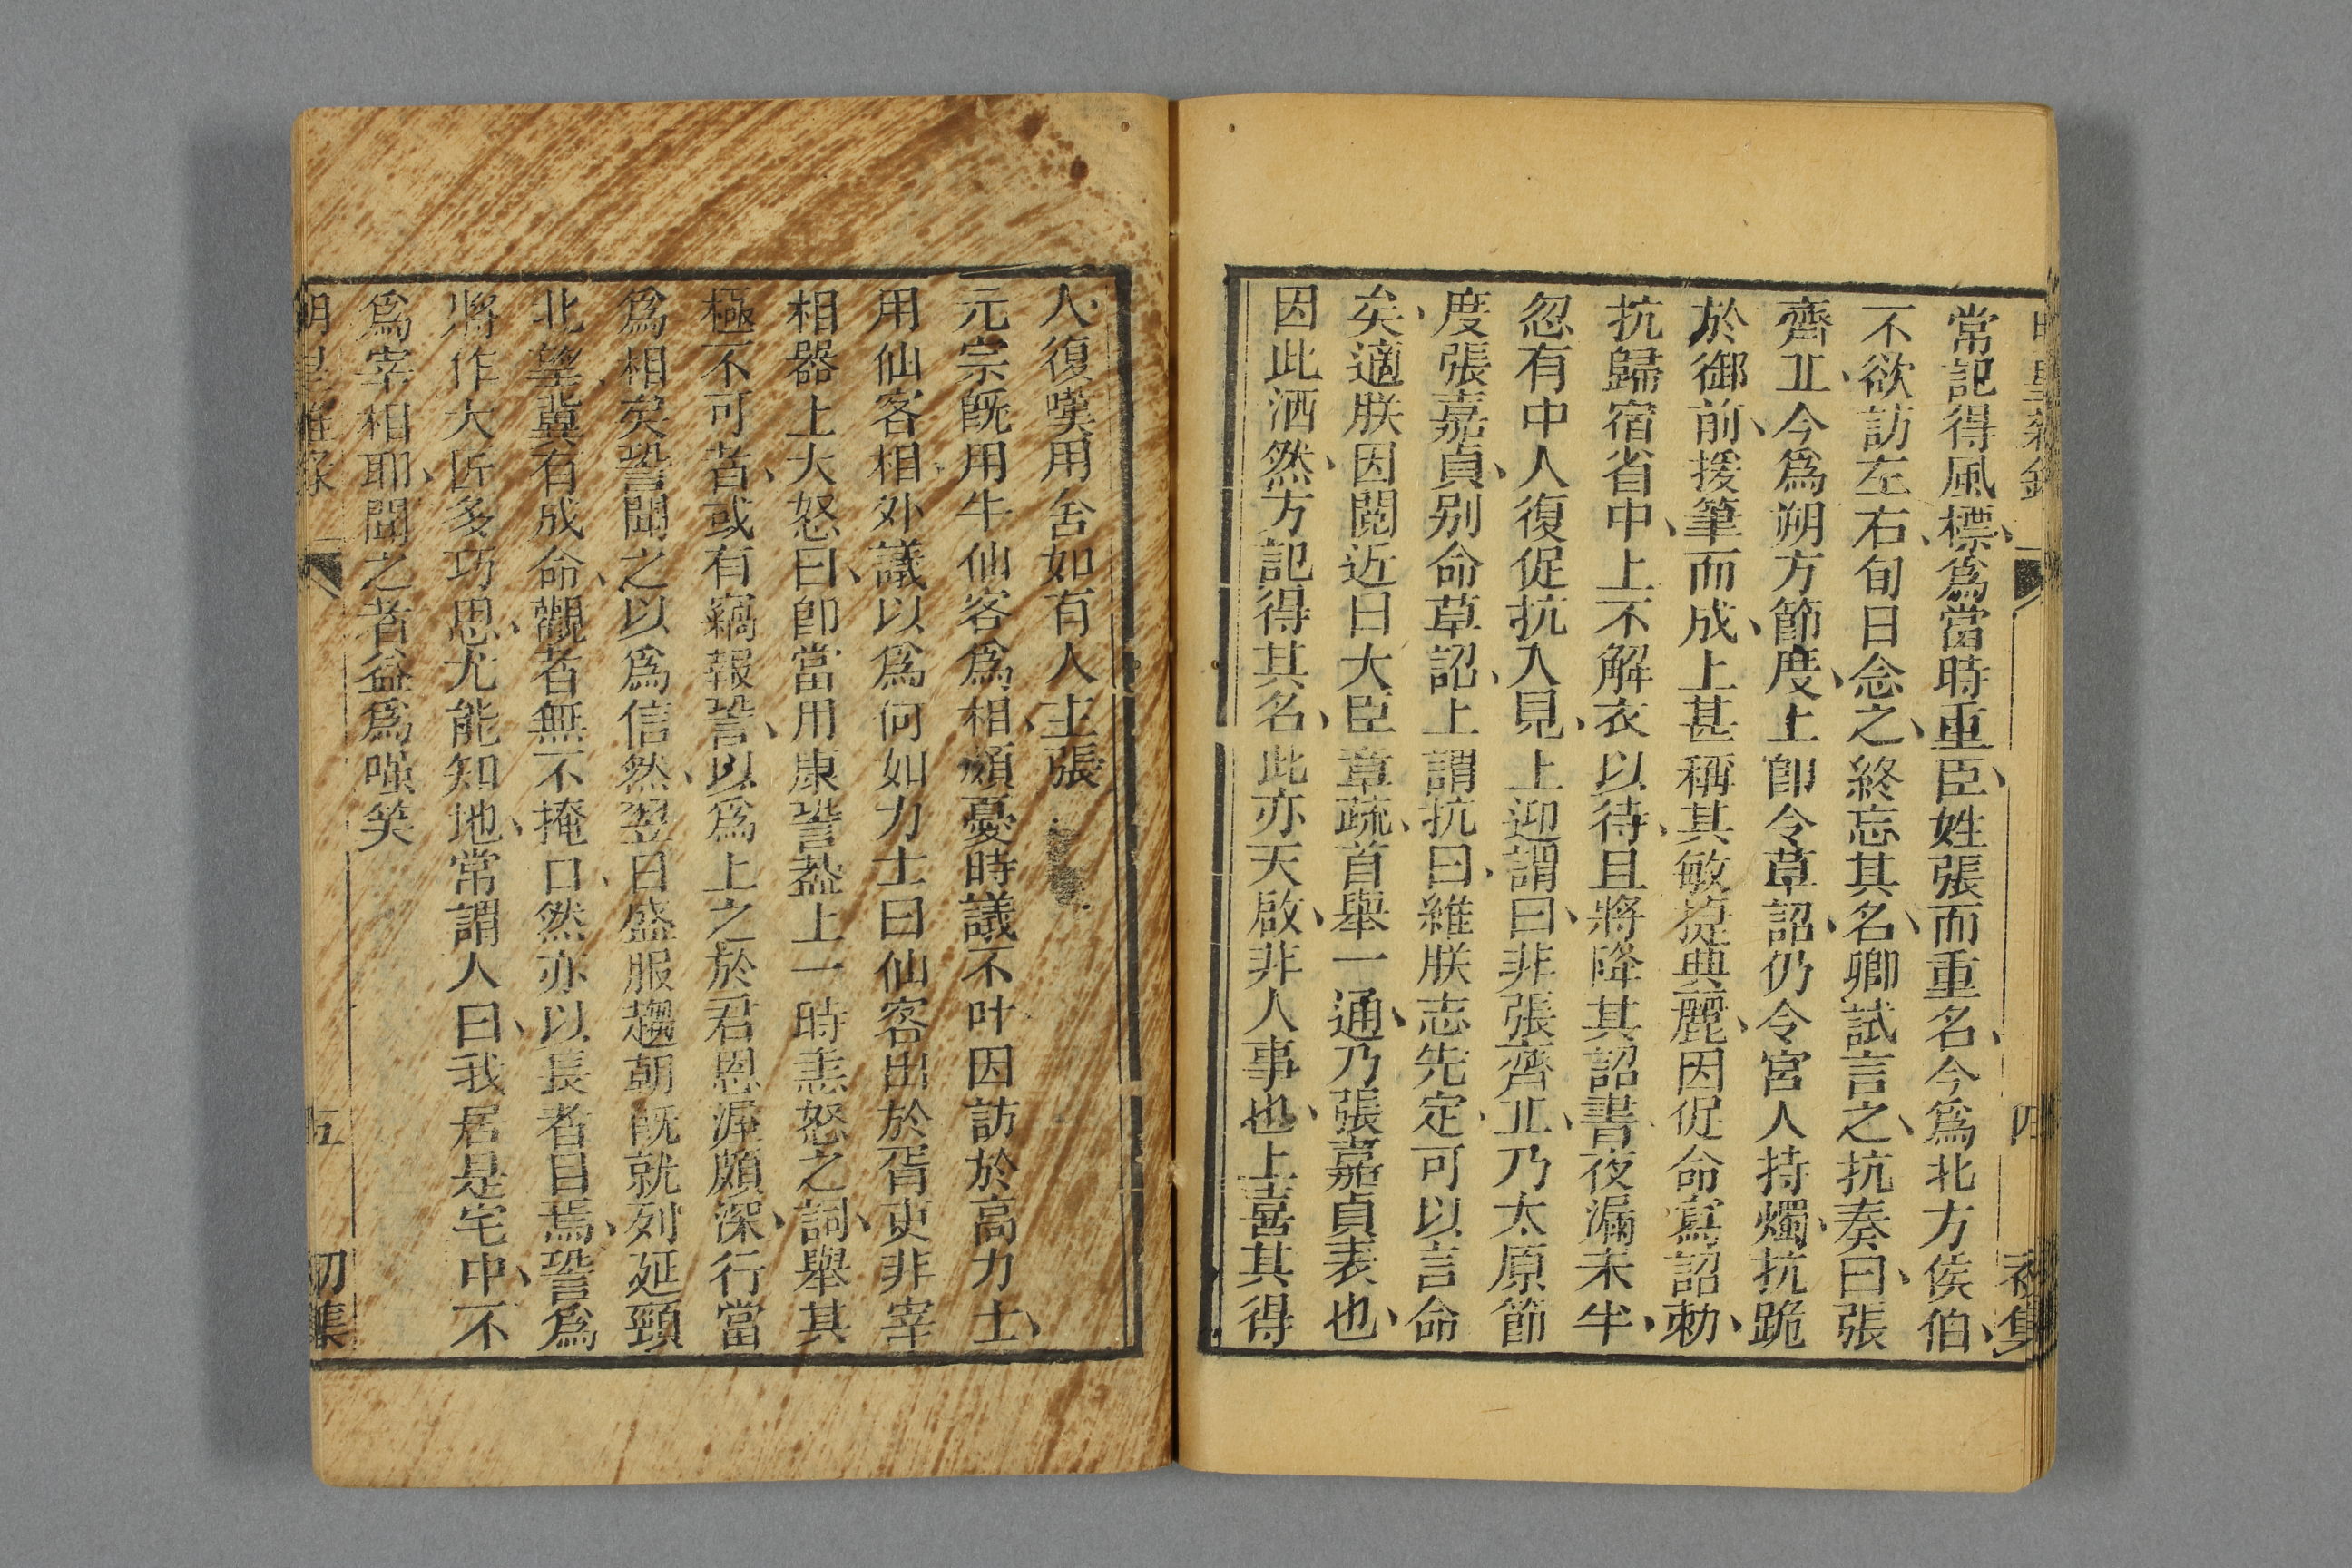 常記得風標、爲當時重臣、姓張而重名、今爲北方侯伯、
不欲訪左右、旬日念之、終忘其名、卿試言之、抗奏曰、張
齊丘、今爲朔方節度、上卽令草詔、仍令宮人持燭、抗跪
於御前、援筆而成、上甚稱其敏捷典麗、因促命寫詔勅、
抗歸宿省中、上不解衣以待、且將降其詔書、夜漏未半、
忽有中人復促抗入見、上迎謂曰、非張齊丘、乃太原節
度張嘉貞、别命草詔、上謂抗曰、維朕志先定、可以言命
矣、適朕因閱近日大臣章疏、首舉一通、乃張嘉貞表也、
因此洒然、方記得其名、此亦天啟、非人事也、上喜其得
人、復嘆用舍如有人主張
元宗旣用牛仙客爲相、頗憂時議不叶、因訪於高力士、
用仙客相、外議以爲何如、力士曰仙客出於胥吏非宰
相器上大怒曰、卽當用康䛒葢上一時恚怒之詞、舉其
極不可者、或有竊報䛒、以爲上之於君恩渥頗深、行當
爲相矣䛒聞之以爲信然、翌日盛服趨朝旣就列延頸
北望、冀有成命、觀者無不掩口、然亦以長者目焉、䛒爲
將作大匠多巧思、尤能知地、常謂人曰、我居是宅中、不
爲宰相耶、聞之者益爲嗤笑
五
初集